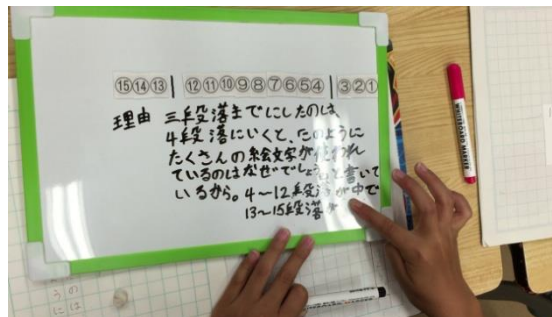 ⑮⑭⑬|⑫⑪⑩⑨⑧⑦⑥⑤④|③②①
理由 三段落までにしたのは、
4段落にいくと、このように
たくさんの絵文字が使われ
ているのはなぜでしょう。と書いて
いるから。4〜12段落が中で
13〜15段落が
WHITEBOARD MARKER